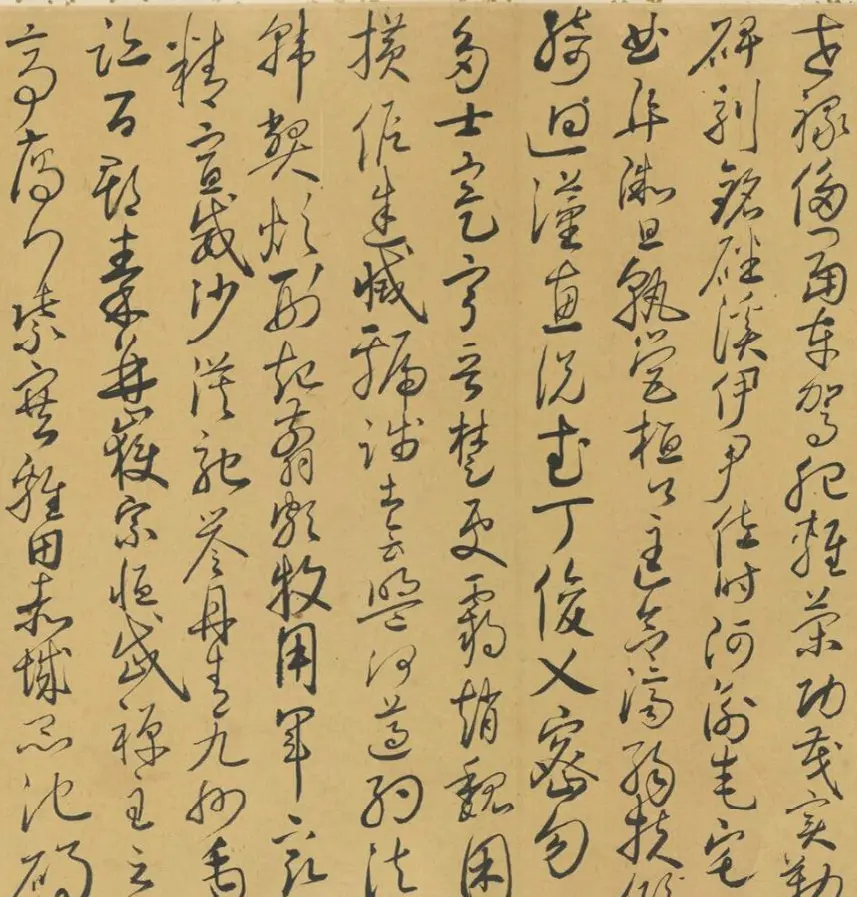 世祿侈富車駕肥輕策功茂實勒
碑刻銘磻溪伊尹佐時阿衡奄宅
曲阜微旦孰營桓公匡合濟弱扶傾
綺迴漢惠說武丁俊乂密勿
多士寔寧晉楚更霸趙魏困
橫假途滅虢踐土會盟何遵約法
韓弊煩刑起翦頗牧用軍最
精宣威沙漠馳譽丹青九州禹
跡百郡秦并嶽宗恒岱禪主云
亭雁門紫塞雞田赤城昆池碣